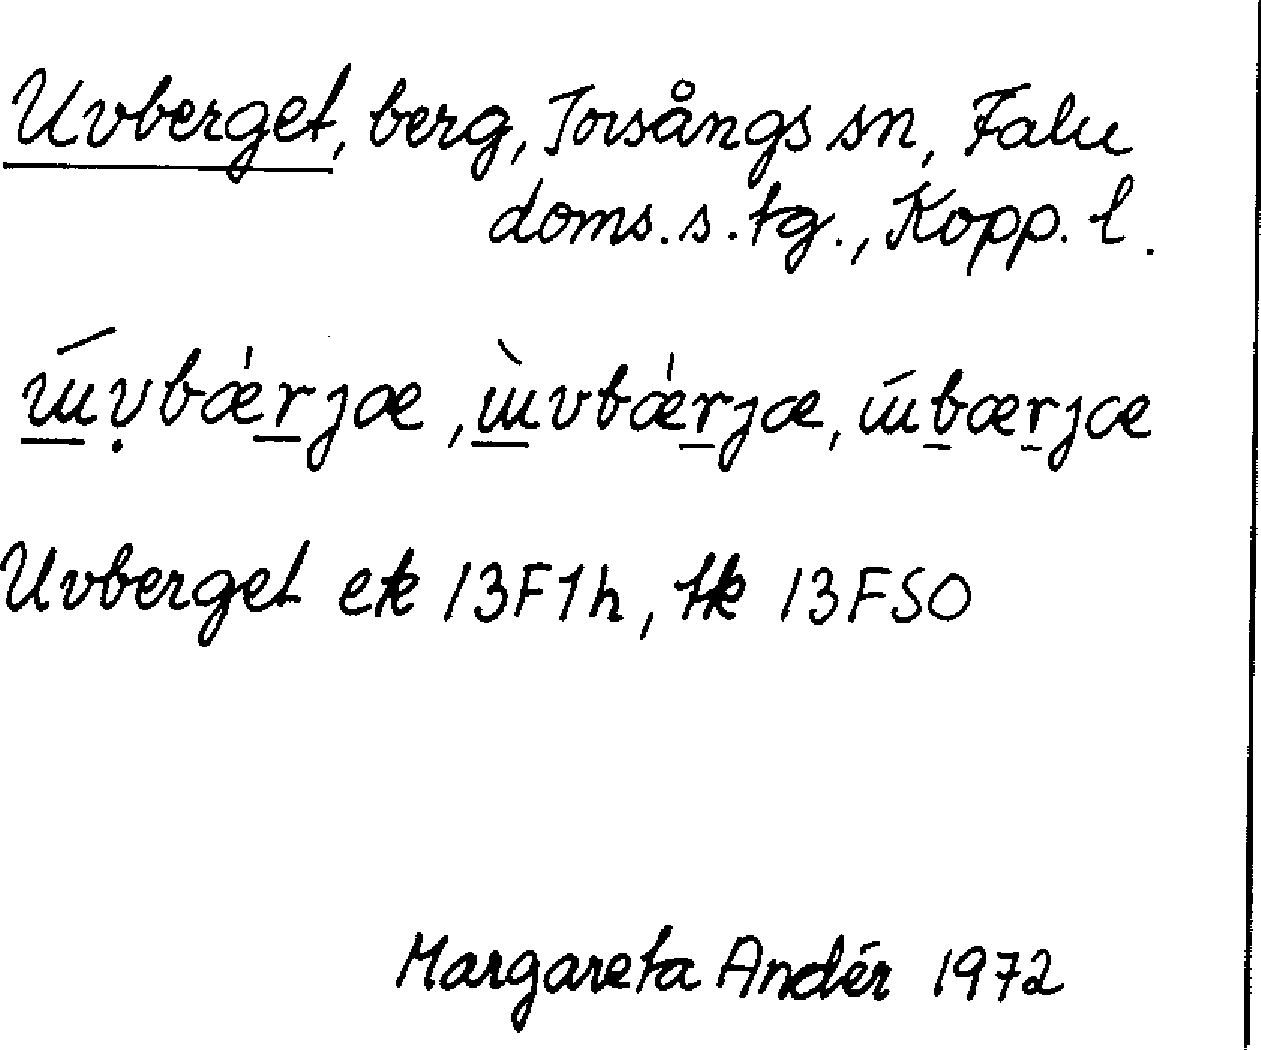 Uvberget, berg, Torsångs sn, Falu
doms.s.tg., Kopp. l.
ɯ́ṿbǽrjæ, ɯ̀vbǽrjæ, ɯ́bærjæ
Uvberget ek 13F1h, tk 13FSO
Margareta Andér 1972